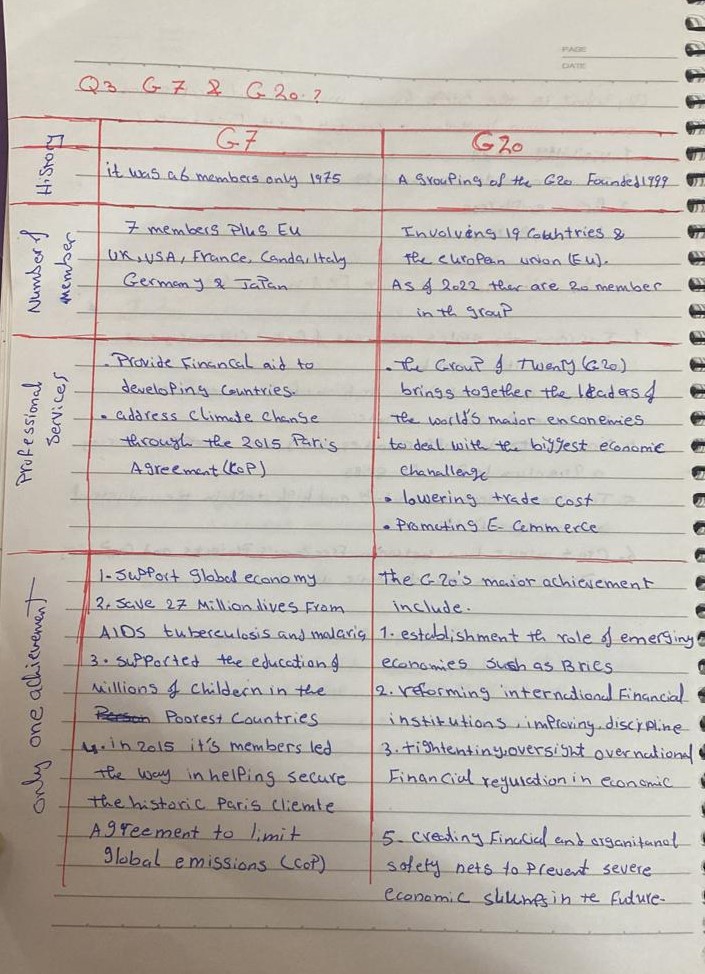 PAGE
DATE
Q3 G7 & G20.?
G7
G20
History
it was a 6 members only 1975
A grouping of the G20 Founded 1999
Number of
member
7 members plus EU
UK, USA, France, Canda, Italy
Germany & JaPan
Involving 19 Countries &
the european union (EU).
As of 2022 ther are 20 member
in th group
Professional
Services
. Provide Financal aid to
developing countries.
• address climate change
through the 2015 Paris
Agreement (COP)
• the Group of Twenty (G20)
brings together the leaders of
the world's major enconemies
to deal with the biggest economic
chanallenge
• lowering trade cost
• Promoting E-Commerce
only one achievement
1- Support Global economy
2. save 27 Million lives From
AIDS tuberculosis and malaria
3. supported the education of
Millions of Childern in the
Person Poorest Countries
4. in 2015 it's members led
the way in helping secure
the historic Paris Cliemte
Agreement to limit
global emissions (COP)
the G20's major achievement
include.
1. establishment th role of emerging
economies sush as Brics
2. reforming international Financial
institutions, improving discipline
3. tightenting oversight over national
Financial regulation in economic
5- creating Fincial and organitanal
safety nets to Prevent severe
economic slumps in te future.